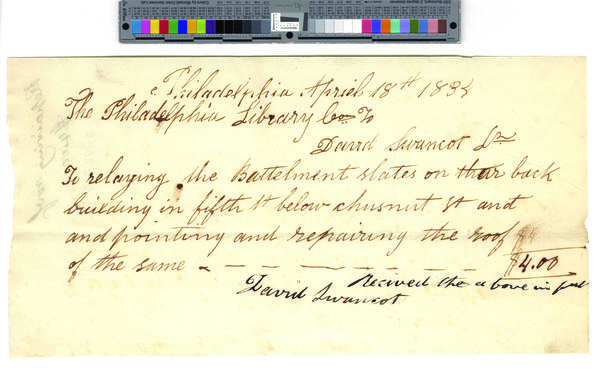 Philadelphia April 18th 1834
The Philadelphia Library Co. To
David Swancot Dr
To relaying the Battelment slates on their back
building in fifth St below chusnut St and
and pointing and repairing the roof $4
of the same - - - - - - - - $4.00
Recived the above in full
David Swancot